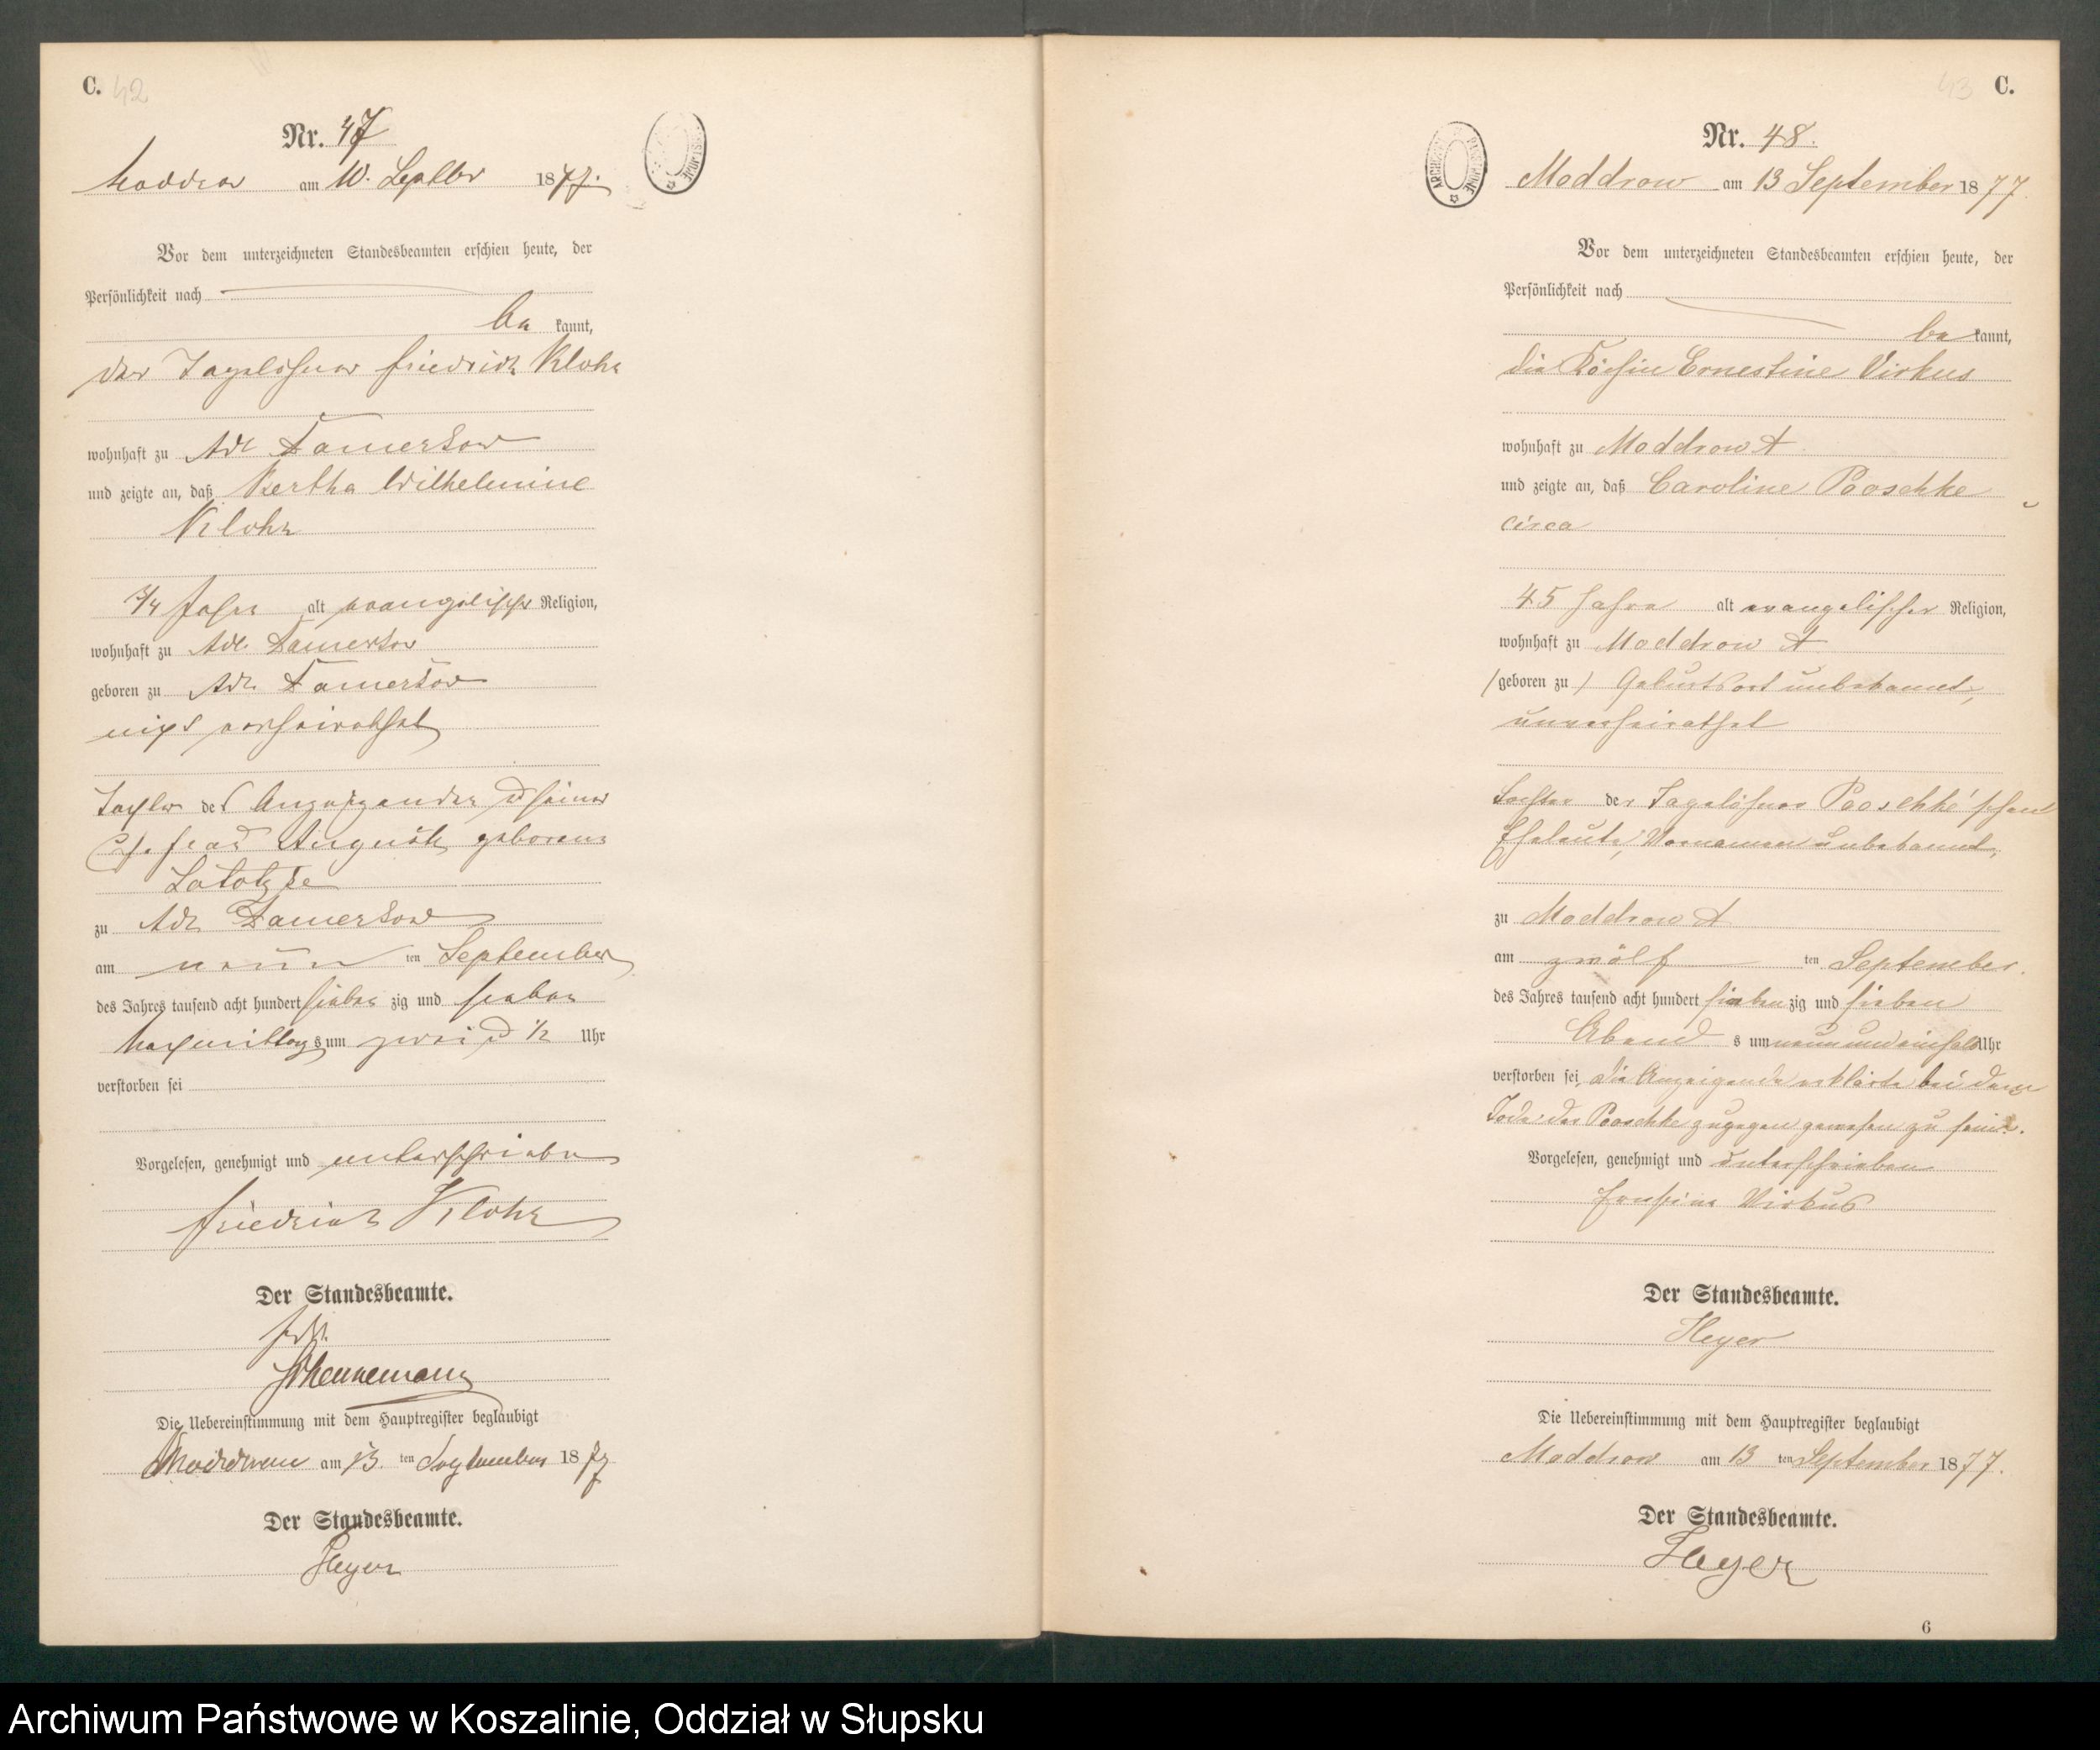 C. 42
Nr. 47
Moddrow am 10. Septbr 1877.
Vor dem unterzeichneten Standesbeamten erschien heute, der
Persönlichkeit nach
be kannt,
der Tagelöhner Friedrich Klohr
wohnhaft zu Adl Damerkow
und zeigte an, daß Bertha Wilhelmine
Klohr
3/4 Jahr alt evangelischer Religion,
wohnhaft zu Adl. Damerkow
geboren zu Adl. Damerkow
nicht verheirathet
Tochter des Anzeigenden u seiner
Ehefrau Auguste geborene
zu Adl Damerkow
am neun ten September
des Jahres tausend acht hundert sieben zig und sieben
Nachmittags um zwei u 1/2 Uhr
verstorben sei
Vorgelesen, genehmigt und unterschrieben
Friedrich Klohr
Der Standesbeamte.
Die Uebereinstimmung mit dem Hauptregister beglaubigt
Moddrow am 13. ten September 1877
Der Standesbeamte.
Heyer
43 C.
Nr. 48.
Moddrow am 13 September 1877.
Vor dem unterzeichneten Standesbeamten erschien heute, der
Persönlichkeit nach
be kannt,
die Köchin Ernestine Virkus
wohnhaft zu Moddrow A
und zeigte an, daß Caroline Pooschke
circa
45 Jahre alt evangelischer Religion,
wohnhaft zu Moddrow A
/geboren zu/ Geburtsort unbekannt,
unverheirathet
Tochter der Tagelöhner Pooschke'schen
Eheleute, Vornamen unbekannt,
zu Moddrow A
am zwölf ten September.
des Jahres tausend acht hundert sieben zig und sieben
Abend s um neun und einhalb Uhr
verstorben sei, die Anzeigende erklärte bei dem
Tode der Pooschke zugegen gewesen zu sein.
Vorgelesen, genehmigt und unterschrieben
Virkus
Der Standesbeamte.
Heyer
Die Uebereinstimmung mit dem Hauptregister beglaubigt
Moddrow am 13 ten September 1877.
Der Standesbeamte.
Heyer
6
Archiwum Państwowe w Koszalinie, Oddział w Słupsku